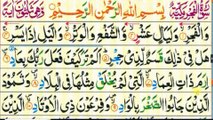 سُوْرَةُ الْفَجْرِ مَكِّيَّةٌ بِسْمِ اللّٰهِ الرَّحْمٰنِ الرَّحِيْمِ
وَالْفَجْرِ وَلَيَالٍ عَشْرٍ وَّالشَّفْعِ وَالْوَتْرِ وَالَّيْلِ اِذَا يَسْرِ
هَلْ فِيْ ذٰلِكَ قَسَمٌ لِّذِيْ حِجْرٍ اَلَمْ تَرَ كَيْفَ فَعَلَ رَبُّكَ بِعَادٍ
اِرَمَ ذَاتِ الْعِمَادِ الَّتِيْ لَمْ يُخْلَقْ مِثْلُهَا فِي الْبِلَادِ وَثَمُوْدَ
الَّذِيْنَ جَابُوا الصَّخْرَ بِالْوَادِ وَفِرْعَوْنَ ذِي الْاَوْتَادِ الَّذِيْنَ